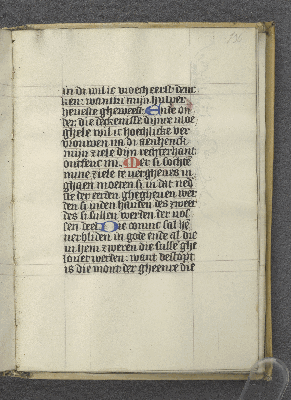 in di wil ic vroech eerst denc
ken: want du mijn hulper
heueste gheweest Ende on
der die deckenisse dijnre vloe
ghele wil ic hoechlicke ver
vrouwen na di aenhenck
mijn ziele dijn rechterhant
ontfenc mi. Mer si sochte
mine ziele te vergheues in
ghaen moeten si in dat neds
te der eerden ghegheuen wer
den si inden handen des zweer
des si sullen werden der vos
sen deel Die coninc sal he
verbliden in gode ende al die
in hem zweren die sulle ghe
louet werden: want bestopt
is die mont der gheenre die